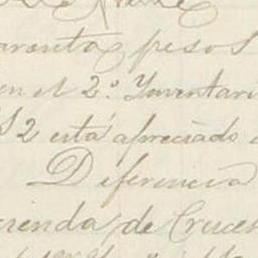 arenta pesos
en el 2.º Inventari
52 está apreciado
Diferencia
cienda de Cruces